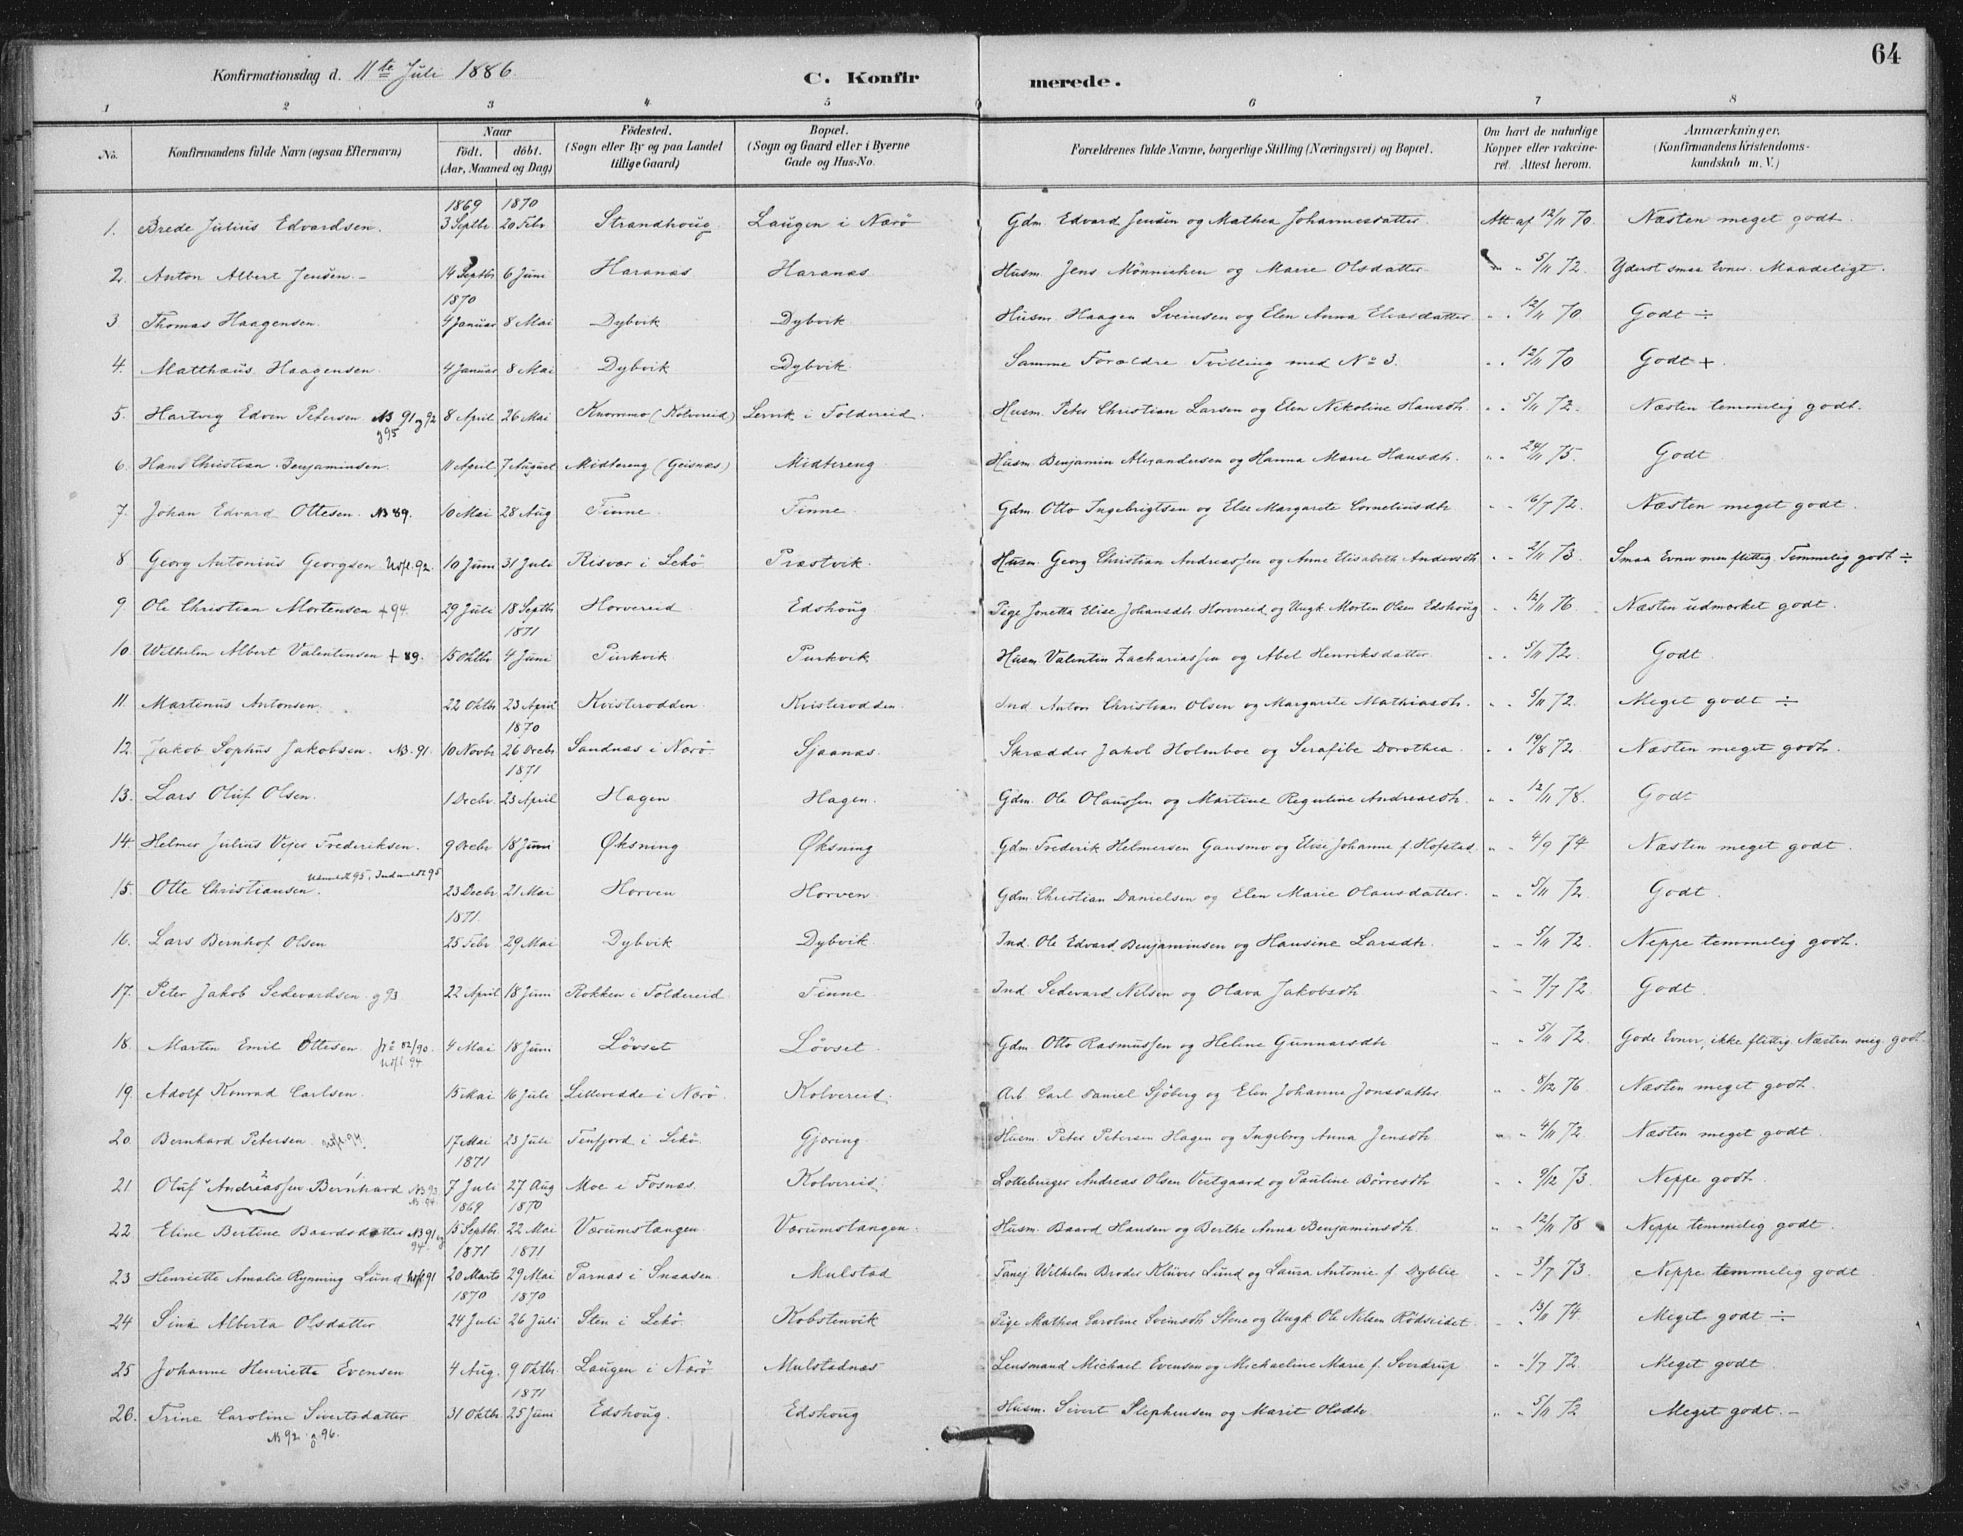 64
Konfirmationsdag d. 11te Juli 1886.
C. Konfirmerede.
1 2 3 4 5 6 7 8
No. Konfirmandens fulde Navn (ogsaa Efternavn) Naar födt. döbt. (Aar, Maaned og Dag) Födested. (Sogn eller By og paa Landet tillige Gaard) Bopæl. (Sogn og Gaard eller i Byerne Gade og Hus-No. Forældrenes fulde Navne, borgerlige Stilling (Næringsvei) og Bopæl. Om havt de naturlige Kopper eller vakcineret. Attest herom. Anmærkninger. (Konfirmandens Kristendomskundskab m. V.)
1869 1870
1. Brede Julius Edvardsen. 3 Septbr 20 Febr Strandhoug Laugen i Nærö Gdm. Edvard Jensen og Mathea Johannesdatter Att af 12/11 70. Næsten meget godt.
2. Anton Albert Jensen - 14 Septbr 6 Juni Haranæs Haranæs Husm. Jens Mönnichen og Marie Olsdatter " " 5/11 72. Yderst smaa Evner. Maadeligt.
1870
3 Thomas Haagensen. 4 Januar 8 Mai Dybvik Dybvik Husm. Haagen Sveinsen og Elen Anna Eliasdatter " " 12/11 70 Godt ÷
4. Matthæus Haagensen 4 Januar 8 Mai Dybvik Dybvik Samme Forældre Tvilling med No 3. " " 12/11 70 Godt +
5. Hartvig Edvin Petersen NB 91 og 92 og 95 8 April 26 Mai Knommo (Kolvereid) Lervik i Foldereid. Husm. Peter Christian Larsen og Elen Nikoline Hansdtr. " " 5/11 72. Næsten temmelig godt.
6. Hans Christian Benjaminsen 11 April 7 August Midtereng (Geisnæs) Midtereng Husm. Benjamin Alexandersen og Hanna Marie Hansdtr. " " 24/11 75. Godt
7. Johan Edvard Ottesen. NB 89. 10 Mai 28 Aug Finne Finne Gdm. Otto Ingebrigtsen og Else Margarete Corneliusdtr " " 16/7 72. Næsten meget godt.
8 Georg Antonius Georgsen Udfl. 92. 10 Juni 31 Juli Risvær i Lekö Præstvik. Husm. Georg Christian Andreassen og Anne Elisabeth Andersdtr " " 2/11 73. Smaa Evner men flittig. Temmelig godt ÷
9. Ole Christian Mortensen + 94. 29 Juli 18 Septbr Horvereid Edshoug Pige Jonetta Elise Johansdtr. Horvereid og Ungk. Morten Olsen Edshoug " " 12/11 76 Næsten udmærket godt.
1871
10. Wilhelm Albert Valentinsen + 89. 15 Oktbr 4 Juni Purkvik Purkvik Husm. Valentin Zachariassen og Abel Henriksdatter " " 5/11 72. Godt
11. Martinus Antonsen. 22 Oktbr 23 April Kvisterodden Kvisterodden. Ind. Anton Christian Olsen og Margarete Mathiasdtr. " " 5/11 72. Meget godt ÷
1870
12. Jakob Sophus Jakobsen. NB. 91. 10 Novbr 26 Decbr Sandnæs i Nærö Sjaanæs. Skrædder Jakob Holmboe og Serafibe Dorothea " " 19/8 72. Næsten meget godt.
1871
13. Lars Oluf Olsen. 1 Decbr. 23 April Hagen Hagen. Gdm. Ole Olaussen og Martine Reguline Andreasdtr. " " 12/11 78. Godt
14. Helmer Julius Vejer Frederiksen. 9 Decbr 18 Juni Øksning Øksning Gdm. Frederik Helmersen Gansmo og Elise Johanne f. Hofstad " " 4/9 74 Næsten meget godt.
15. Otte Christiansen. Udmeldt 95, Indmeldt 95 23 Decbr 21 Mai Horven Horven. Gdm. Christian Danielsen og Elen Marie Olausdatter. " " 5/11 72 Godt.
1871.
16. Lars Bernhof Olsen 25 Febr 29 Mai Dybvik Dybvik Ind. Ole Edvard Benjaminsen og Hansine Larsdtr. " " 5/11 72. Neppe temmelig godt.
17. Peter Jakob Sedevardsen g 93 22 April 18 Juni Rokken i Foldereid Finne Ind. Sedevard Nilsen og Olava Jakobsdtr " " 7/7 72. Godt.
18. Martin Emil Ottesen 82/90. Udfl 94 4 Mai 18 Juni Lövset Lövset Gdm. Otto Rasmussen og Heline Gunnarsdtr " " 5/11 72. Gode Evner, ikke flittig. Næsten meg. godt
19. Adolf Konrad Carlsen. 15 Mai 16 Juli Lillevedde i Nærö. Kolvereid. Arb. Carl Daniel Sjöberg og Elen Johanne Jonsdatter " " 8/12 76 Næsten meget godt.
20. Bernhard Petersen udfl. 94. 17 Mai 23 Juli Tenfjord i Lekö. Gjæring Husm. Peter Petersen Hagen og Ingeborg Anna Jensdtr " " 4/11 72. Næsten meget godt.
1871
21 Oluf Andreassen Bernhard NB 93 7 Juli 27 Aug Moe i Fosnæs. Kolvereid Andreas Olsen Vestgaard og Pauline Börresdtr " " 9/12 73. Neppe godt.
1869 1870
22 Eline Bertine Baardsdatter NB 91 og 94. 15 Septbr. 22 Mai Værumstangen Værumstangen. Husm. Baard Hansen og Berthe Anna Benjaminsdtr. " " 12/11 78 Neppe temmelig godt.
1871 1871
23 Henriette Amalie Rynning Lund Udfl 91 20 Marts 29 Mai Parnas i Snaasen Mulstad Wilhelm Broder Klüver Lund og Laura Antonie f. Dyblie " " 3/7 73. Neppe temmelig godt
1870 1870
24 Sina Alberta Olsdatter 24 Juli 26 Juli Sten i Lekö. Kobstenvik Pige Mathea Caroline Sveinsdtr Stene og Ungk Ole Nilsen Rödseidet. " " 13/11 74. Meget godt ÷
25 Johanne Henriette Evensen 4 Aug. 9 Oktbr. Laugen i Nærö Mulstadnæs Lensmand Michael Evensen og Michaeline Marie f. Sverdrup " " 1/7 72. Meget godt.
1871
26. Trine Caroline Sivertsdatter 31 Oktbr. 25 Juni Edshoug. Edshoug Husm. Sivert Stephensen og Marit Olsdtr. " " 5/11 72 Meget godt. -
NB 92 og 96.